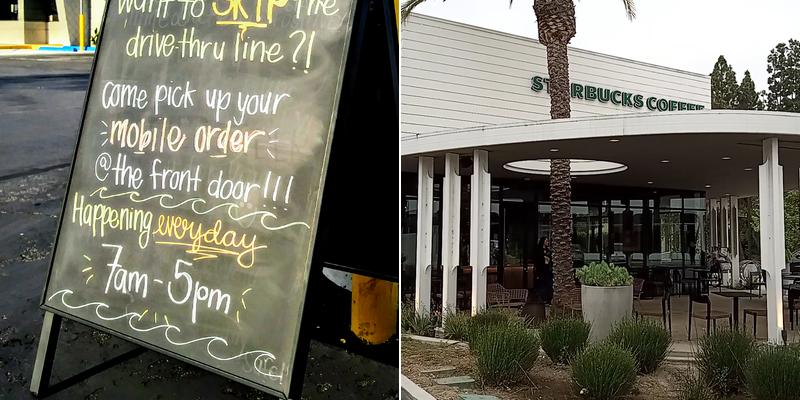 want to SKIP the
drive-thru line?!
come pick up your
mobile order
@ the front door!!!
Happening everyday
7am - 5pm
STARBUCKS COFFEE